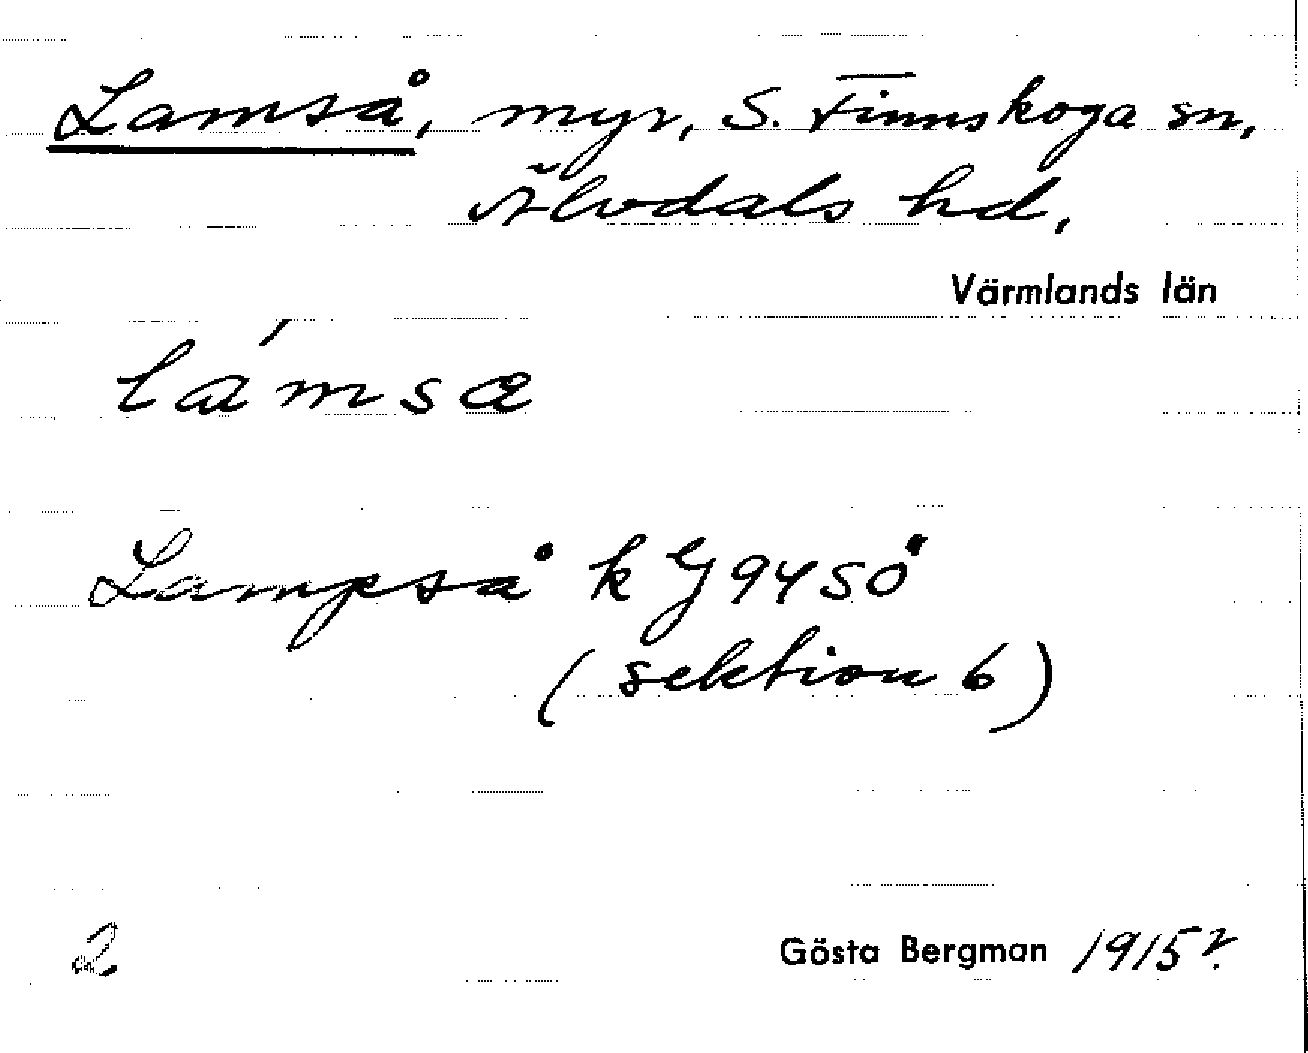 Lamså, myr, S. Finnskoga sn,
Älvdals hd,
Värmlands län
lámsa
Lampså k G 94 SÖ
(sektion 6)
2
Gösta Bergman 1915?